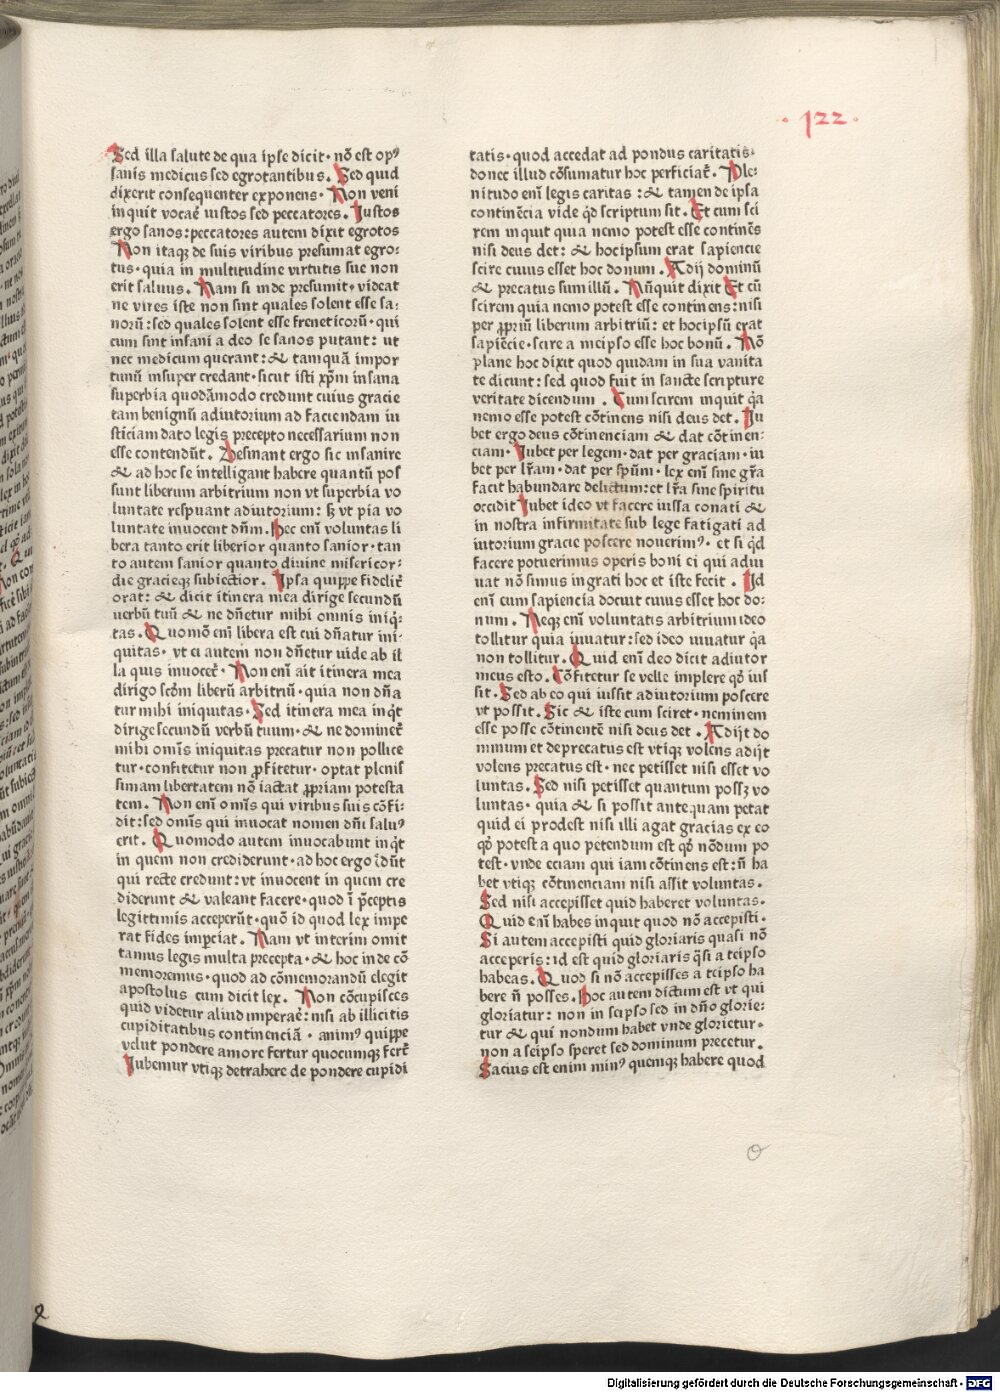 · 122 ·
Sed illa salute de qua ipse dicit· nō est opꝰ
sanis medicus sed egrotantibus. Sed quid
dixerit consequenter exponens· Non veni
inquit vocaē iustos sed peccatores. Iustos
ergo sanos: peccatores autem dixit egrotos
Non itaqꝫ de suis viribus presumat egro⸗
tus· quia in multitudine virtutis sue non
erit saluus. Nam si inde presumit· videat
ne vires iste non sint quales solent esse sa⸗
norū: sed quales solent esse freneticorū· qui
cum sint insani a deo se sanos putant: ut
nec medicum querant: & tamquā impor
tunū insuper credant· sicut isti xp̄m insana
superbia quodāmodo credunt cuius gracie
tam benignū adiutorium ad faciendam iu
sticiam dato legis precepto necessarium non
esse contendūt. Desinant ergo sic insanire
& ad hoc se intelligant habere quantū pos
sunt liberum arbitrium non vt superbia vo
luntate respuant adiutorium: sꝫ vt pia vo
luntate inuocent dn̄m. Hec enī voluntas li
bera tanto erit liberior quanto sanior· tan
to autem sanior quanto diuine misericor⸗
die gracieqꝫ subiectior. Ipsa quippe fidelit̄
orat: & dicit itinera mea dirige secundū
uerbū tuū & ne dn̄etur mihi omnis iniq̄⸗
tas. Quomō enī libera est cui dn̄atur ini⸗
quitas· vt ei autem non dn̄etur uide ab il
la quis inuocet̄. Non enī ait itinera mea
dirigo scd̄m liberū arbitriū· quia non dn̄a
tur mihi iniquitas· Sed itinera mea inq̄t
dirige secundū verbū tuum· & ne dominet̄
mihi om̄is iniquitas precatur non pollice
tur· confitetur non ꝓfitetur· optat plenis
simam libertatem nō iactat ꝓpriam potesta
tem. Non enī om̄is qui viribus suis cōfi⸗
dit: sed om̄is qui inuocat nomen dn̄i saluꝰ
erit. Quomodo autem inuocabunt inq̄t
in quem non crediderunt· ad hoc ergo cred̄ūt
qui recte credunt: vt inuocent in quem cre
diderunt & valeant facere· quod ī p̄ceptis
legittimis acceperūt· quō id quod lex impe
rat fides impeiat. Nam vt interim omit
tamus legis multa precepta· & hoc inde cō
memoremus· quod ad cōmemorandū elegit
apostolus cum dicit lex. Non cōcupisces
quid videtur aliud imperaē: nisi ab illicitis
cupiditatibus continenciā· animꝰ quippe
velut pondere amore fertur quocumqꝫ fert̄
Iubemur vtiqꝫ detrahere de pondere cupidi
tatis· quod accedat ad pondus caritatis⸗
donec illud cōsumatur hoc perficiat̄. Ple⸗
nitudo enī legis caritas: & tamen de ipsa
continēcia vide qd̄ scriptum sit. Et cum sci
rem inquit quia nemo potest esse continēs
nisi deus det: & hocipsum erat sapiencie
scire cuius esset hoc donum. Adij dominū
& precatus sum illū. Nūquit dixit Et cū
scirem quia nemo potest esse continens: nisi
per ꝓpriū liberum arbitriū: et hocipsū erat
sapiēcie· scire a meipso esse hoc bonū. Nō
plane hoc dixit quod quidam in sua vanita
te dicunt: sed quod fuit in sancte scripture
veritate dicendum. Cum scirem inquit q̄a
nemo esse potest cōtinens nisi deus det. Iu
bet ergo deus cōtinenciam & dat cōtinen⸗
ciam· Iubet per legem· dat per graciam· iu
bet per lr̄am· dat per spūm· lex enī sine gr̄a
facit habundare delictum: et lr̄a sine spiritu
occidit Iubet ideo vt facere iussa conati &
in nostra infirmitate sub lege fatigati ad
iutorium gracie poscere nouerimꝰ· et si qd̄
facere potuerimus operis boni ei qui adiu
uat nō simus ingrati hoc et iste fecit. Id
enī cum sapiencia docuit cuius esset hoc do⸗
num. Neqꝫ enī voluntatis arbitrium ideo
tollitur quia iuuatur: sed ideo iuuatur q̄a
non tollitur. Quid enī deo dicit adiutor
meus esto. Cōfitetur se velle implere qd̄ ius
sit. Sed ab eo qui iussit adiutorium poscere
vt possit. Sic & iste cum sciret· neminem
esse posse cōtinentē nisi deus det. Adijt do
minum et deprecatus est vtiqꝫ volens adijt
volens precatus est· nec petisset nisi esset vo
luntas. Sed nisi petisset quantum possꝫ vo
luntas· quia & si possit antequam petat
quid ei prodest nisi illi agat gracias ex eo
qd̄ potest a quo petendum est qd̄ nōdum po
test· vnde eciam qui iam cōtinens est: n̄ ha
bet vtiqꝫ cōtinenciam nisi assit voluntas.
Sed nisi accepisset quid haberet voluntas.
Quid enī habes inquit quod nō accepisti·
Si autem accepisti quid gloriaris quasi nō
acceperis: id est quid gloriaris q̄si a teipso
habeas. Quod si nō accepisses a teipso ha
bere n̄ posses. Hoc autem dictum est vt qui
gloriatur: non in seipso sed in dn̄o glorie⸗
tur & qui nondum habet vnde glorietur·
non a seipso speret sed dominum precetur.
Sacius est enim minꝰ quemqꝫ habere quod
Digitalisierung gefördert durch die Deutsche Forschungsgemeinschaft · DFG